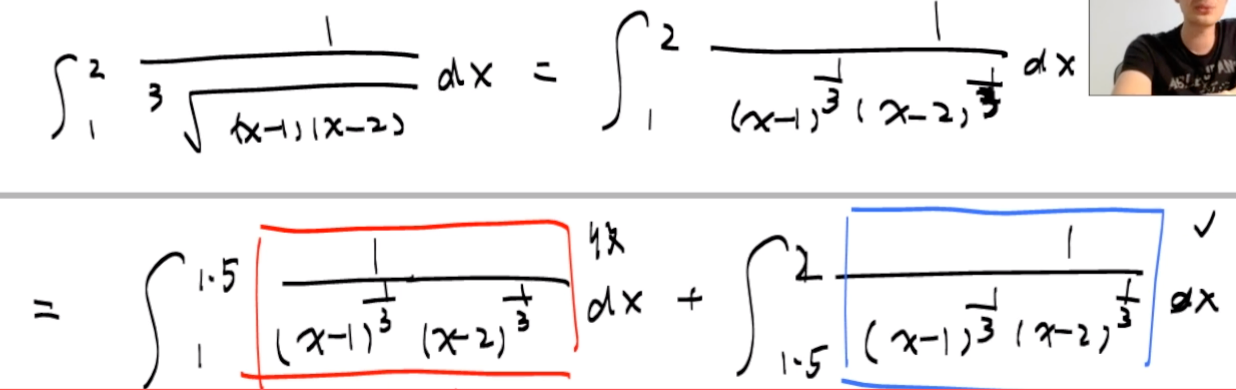 ∫₁² 1/∛((x-1)(x-2)) dx = ∫₁² 1/((x-1)^(1/3) (x-2)^(1/3)) dx
= ∫₁^1.5 1/((x-1)^(1/3) (x-2)^(1/3)) dx + ∫_1.5^2 1/((x-1)^(1/3) (x-2)^(1/3)) dx ✓